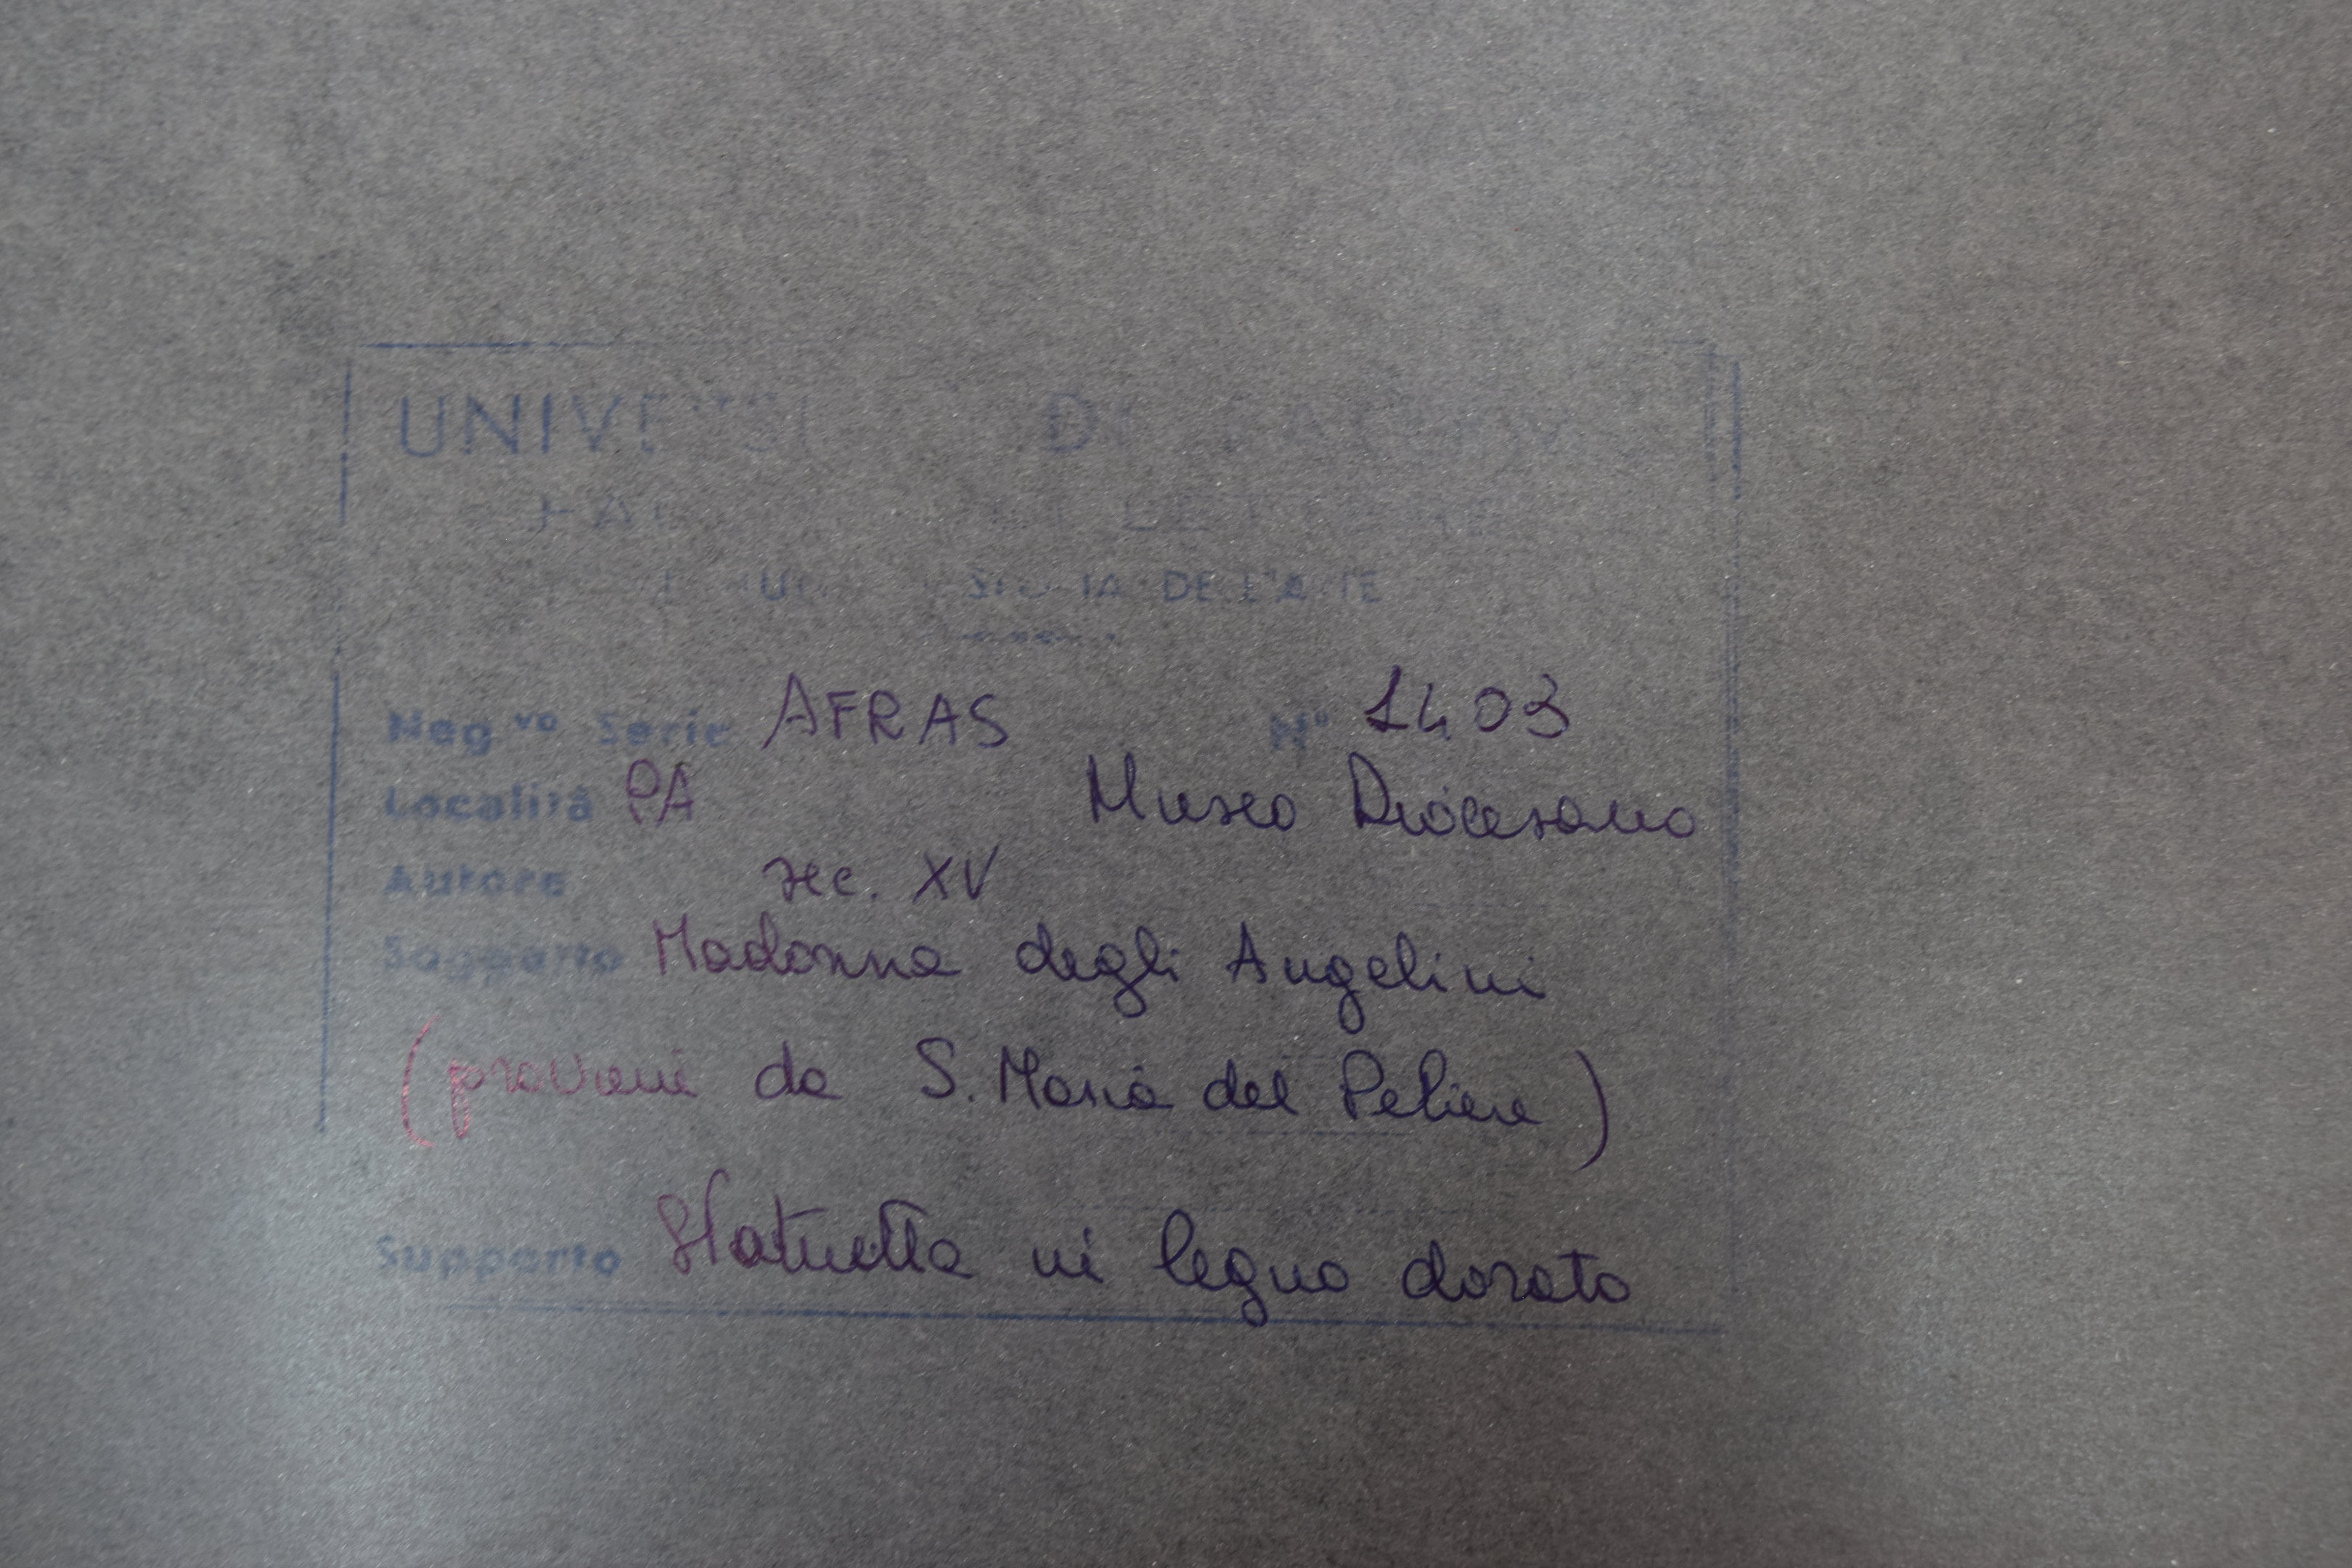 Neg.vo Serie AFRAS N° 1403
Località PA Museo Diocesano
Autore sec. XV
Soggetto Madonna degli Angelini
(provieni da S. Maria del Peliere)
Supporto Statuetta in legno dorato